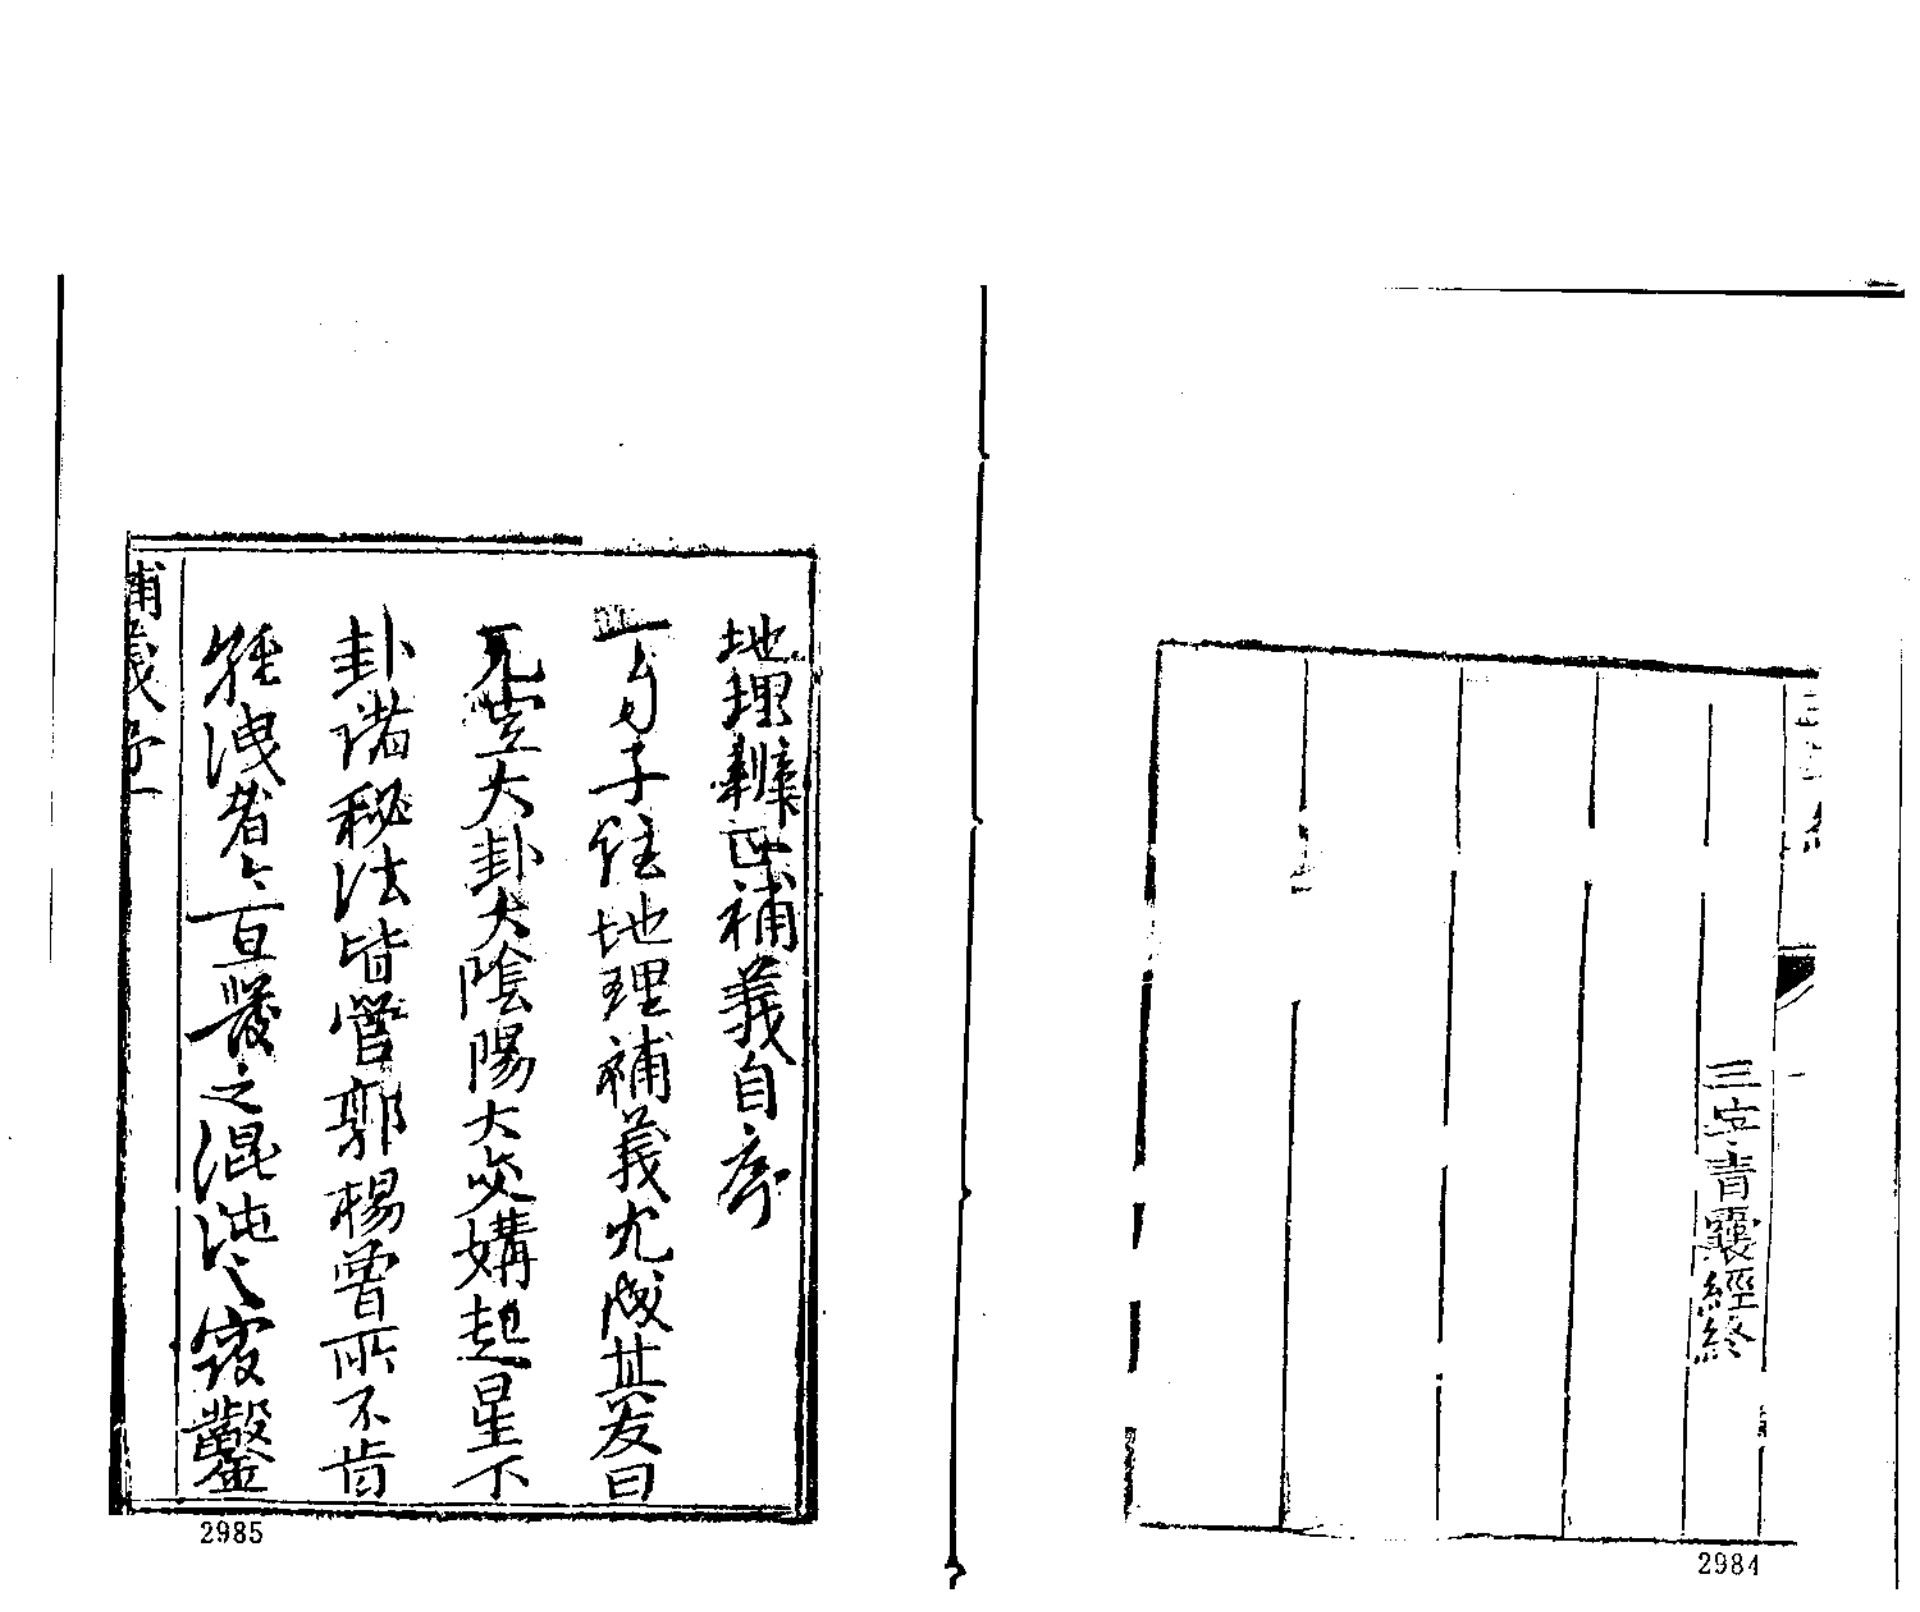 三字青囊經終
2984
地理辨正補義自序
一勺子註地理補義尤成其友曰
元空大卦大陰陽大交媾起星下
卦諸秘法皆管郭楊曾所不肯
輕洩者今盲發之混沌之竅鑿
補義序一
2985